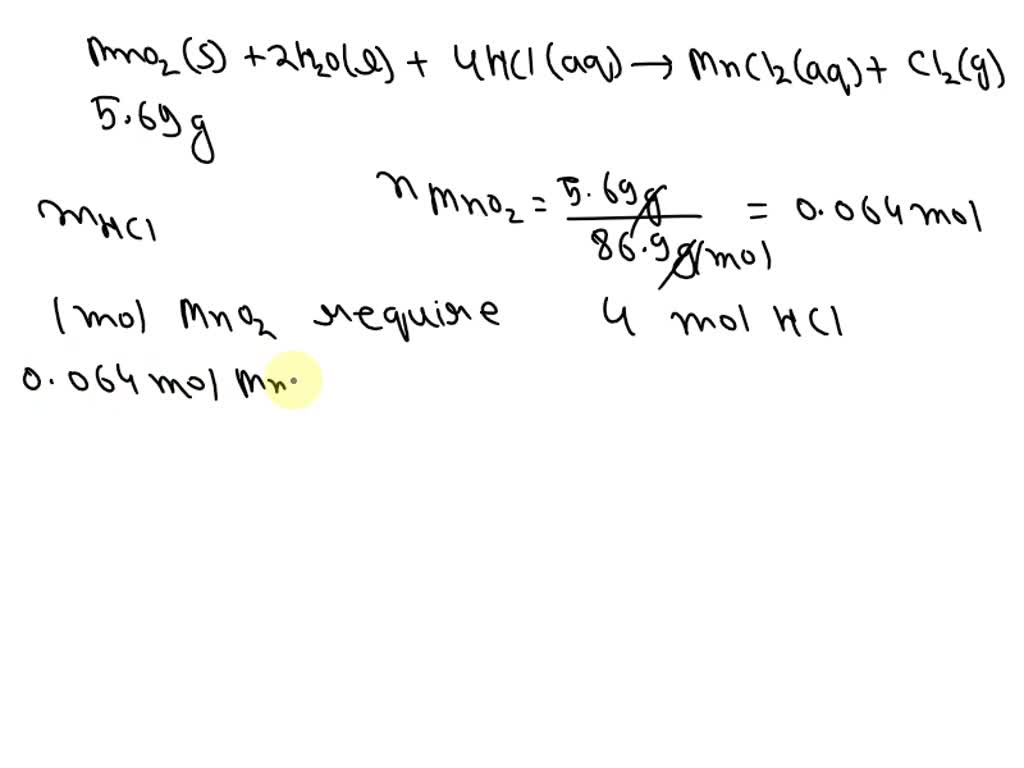 MnO₂(s) + 2H₂O(l) + 4HCl(aq) → MnCl₂(aq) + Cl₂(g)
5.69g
mHCl
nMnO₂ = 5.69g / 86.9g/mol = 0.064 mol
1 mol MnO₂ require 4 mol HCl
0.064 mol Mn